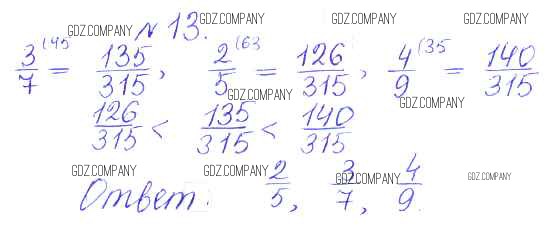 GDZ.COMPANY № 13. GDZ.COMPANY GDZ.COMPANY GDZ.COMPANY
3/7 (45 = 135/315, 2/5 (63 = 126/315, 4/9 (35 = 140/315
GDZ.COMPANY GDZ.COMPANY
126/315 < 135/315 < 140/315
GDZ.COMPANY GDZ.COMPANY GDZ.COMPANY GDZ.COMPANY
Ответ: 2/5, 3/7, 4/9.